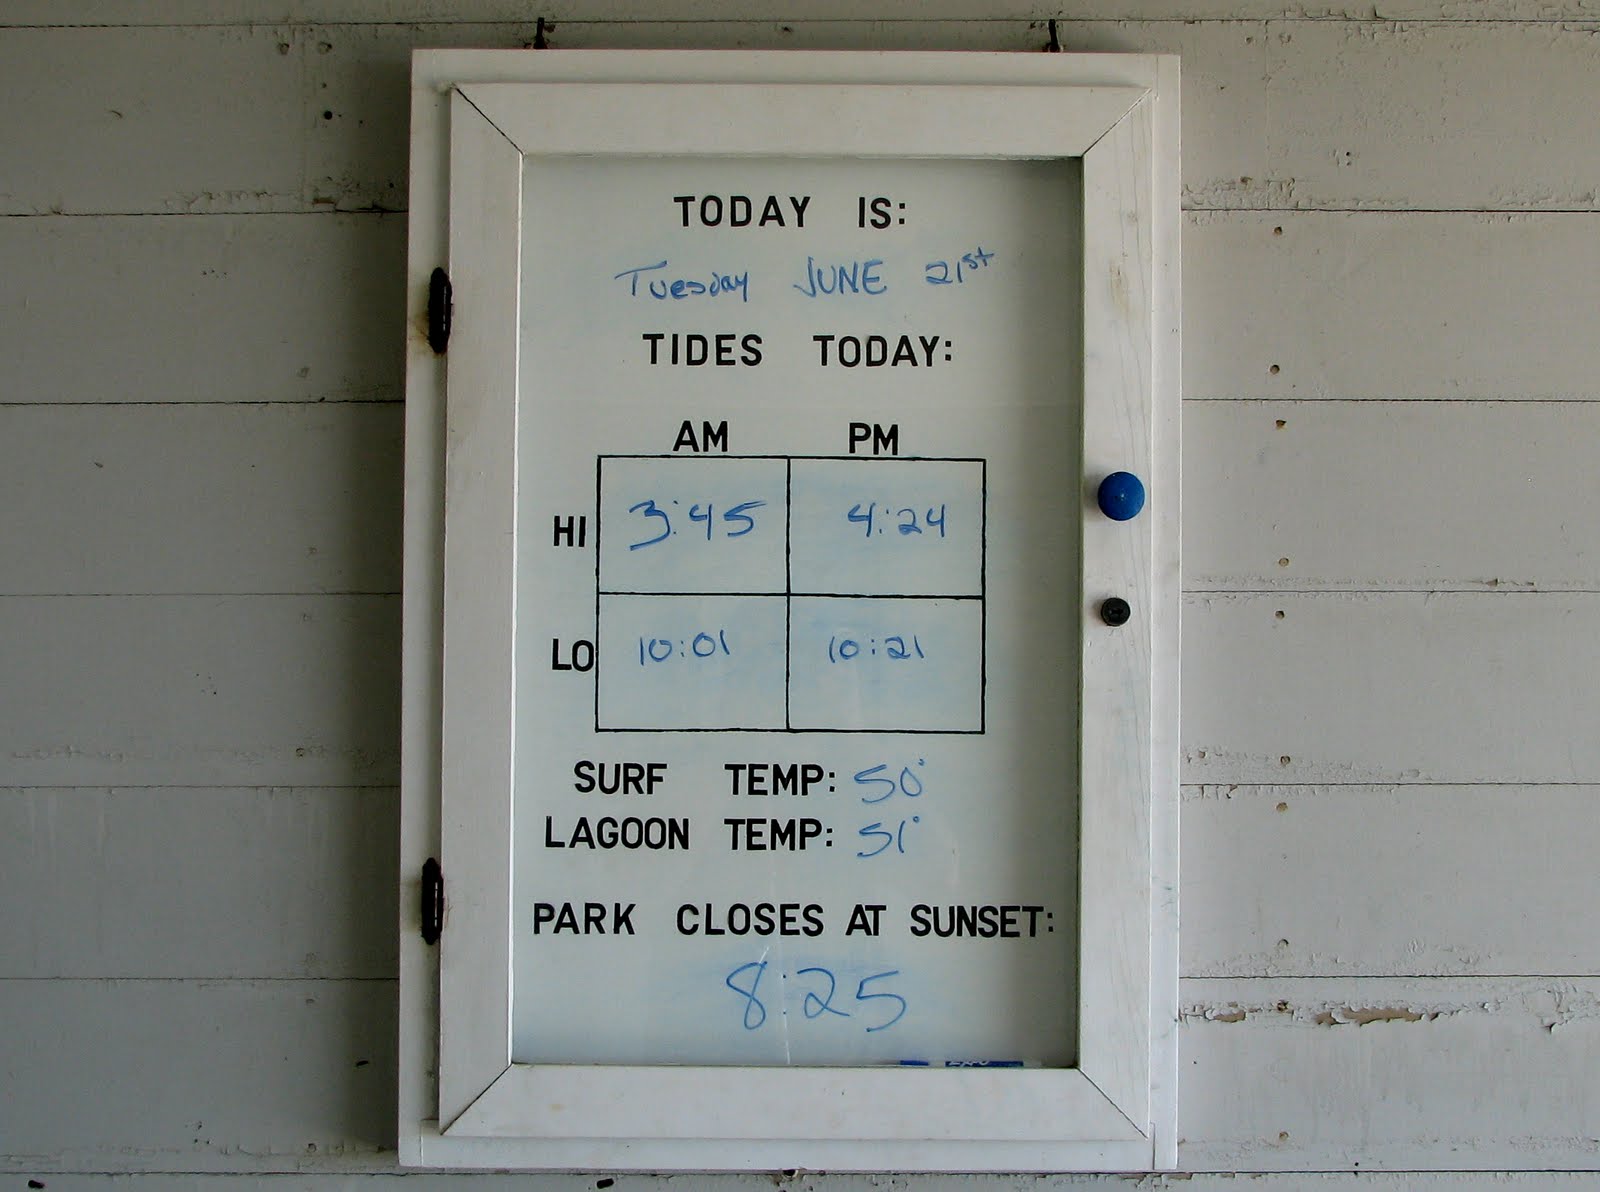 TODAY IS:
Tuesday JUNE 21st
TIDES TODAY:
AM PM
HI 3:45 4:24
LO 10:01 10:21
SURF TEMP: 50°
LAGOON TEMP: 51°
PARK CLOSES AT SUNSET:
8:25